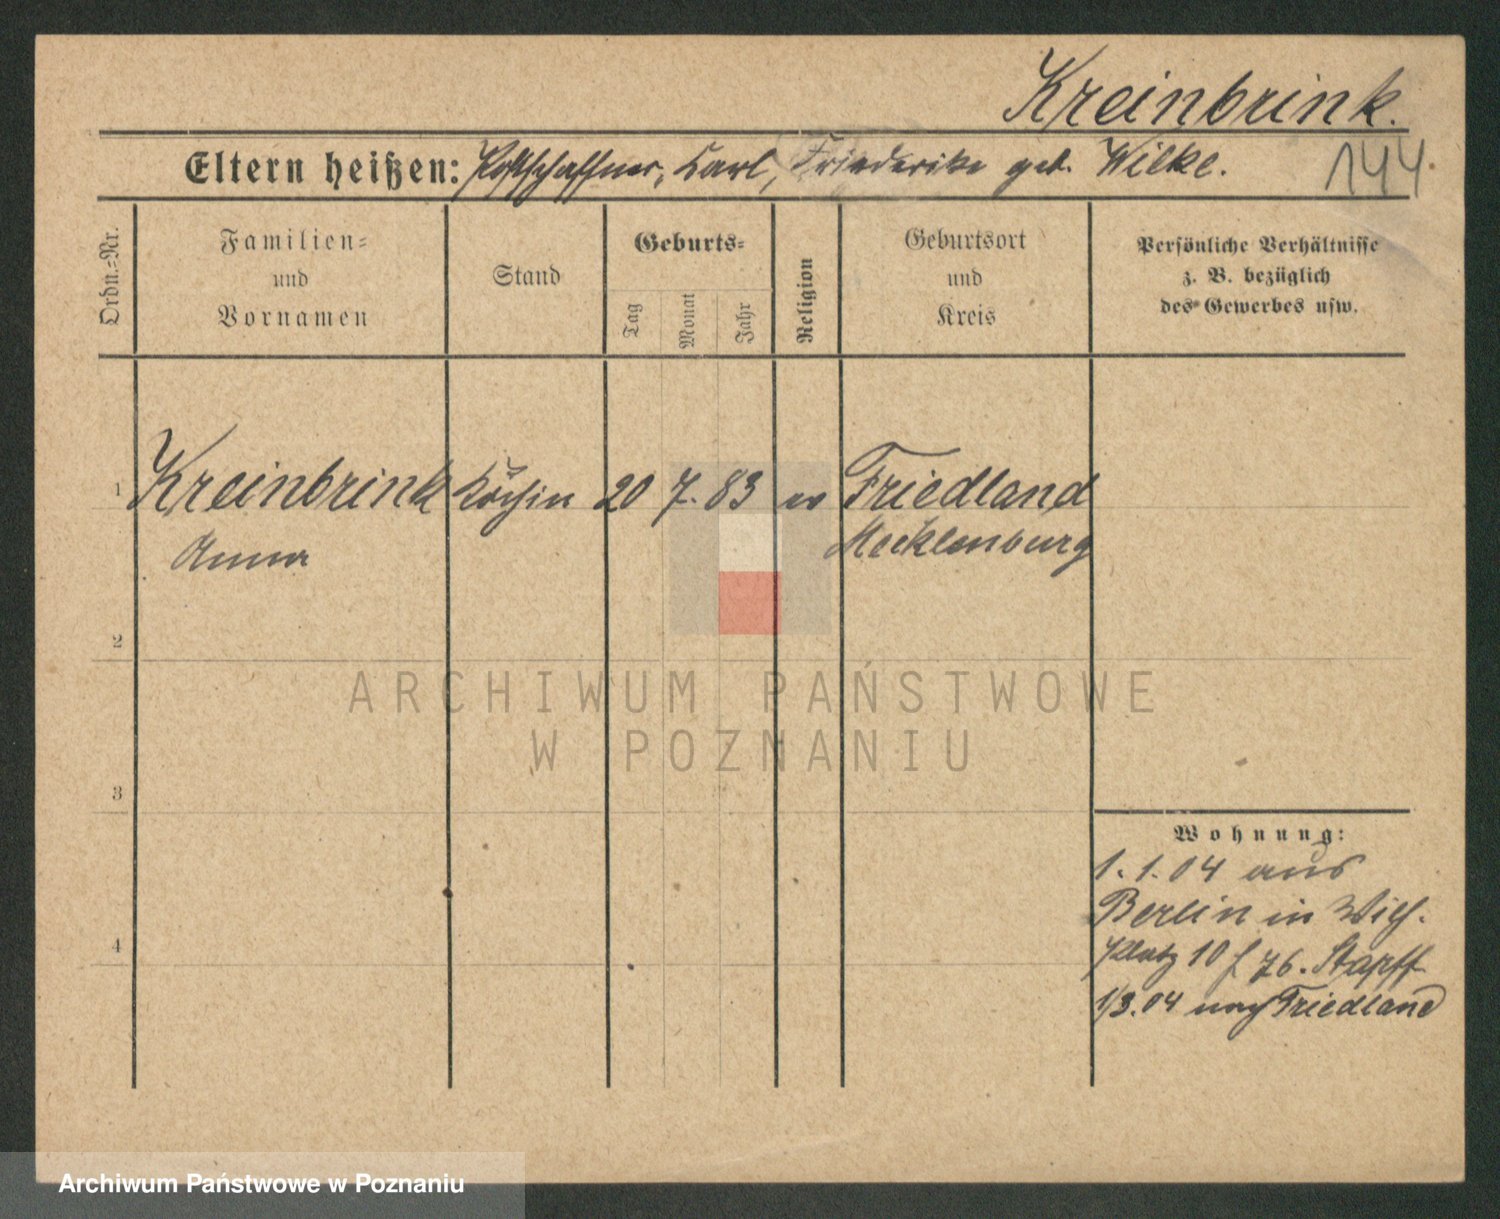 Kreinbrink.
Eltern heißen: Postschaffner, Carl, Friederike geb. Wilke.
144.
Ordn.-Nr.
Familien-
und
Vornamen
Stand
Geburts-
Tag
Monat
Jahr
Religion
Geburtsort
und
Kreis
Persönliche Verhältnisse
z. B. bezüglich
des Gewerbes usw.
1 Kreinbrink Köchin 20 7. 83 ev Friedland
Anna Mecklenburg
2
ARCHIWUM PAŃSTWOWE
W POZNANIU
3
Wohnung:
1.1.04 aus
Berlin in Wilh.
4
Platz 10 f 76. Stapff
1/3.04 nach Friedland
Archiwum Państwowe w Poznaniu